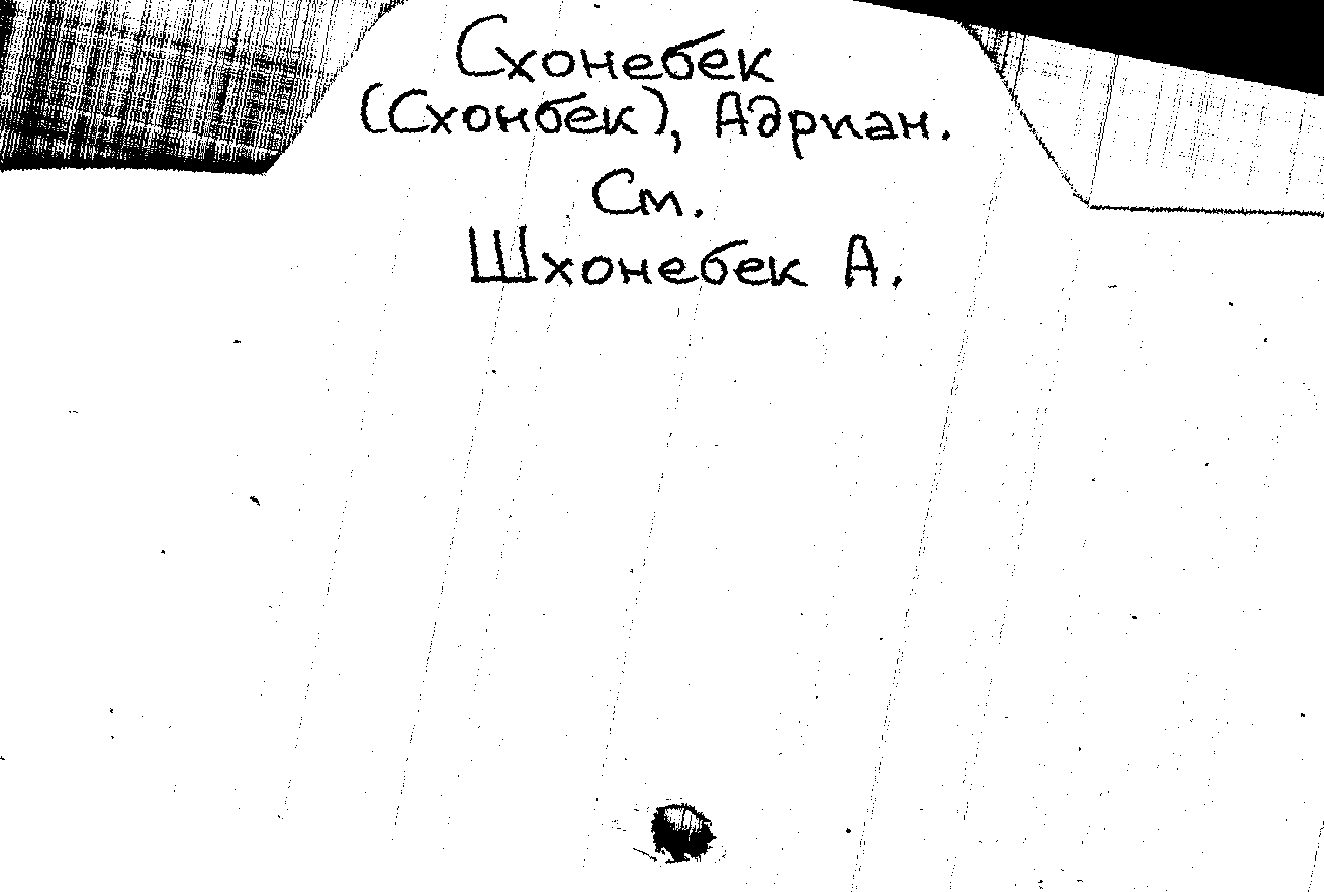 Схонебек
(Схонбек), Адриан.
См.
Шхонебек А.